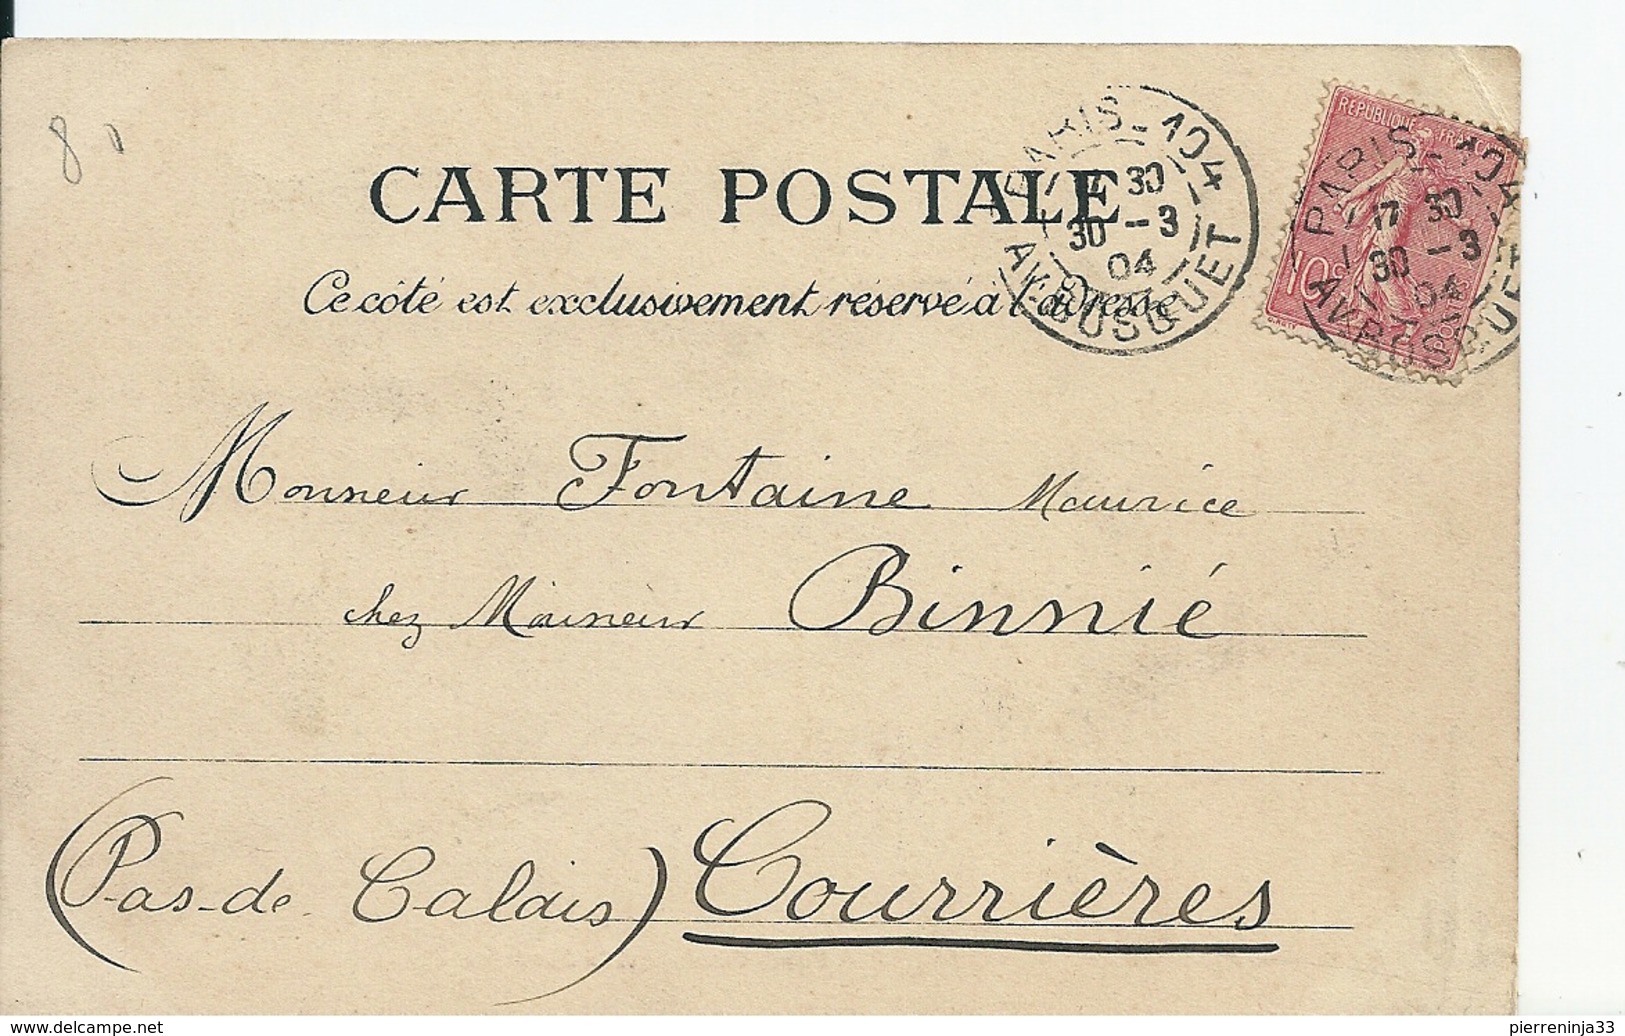 80
CARTE POSTALE
Ce côté est exclusivement réservé à l'adresse
PARIS-104
17 30
30 -3
04
AV. BOSQUET
REPUBLIQUE FRANÇAISE
10c
PARIS-104
17 30
30 -3
04
AV. BOSQUET
Monsieur Fontaine Maurice
chez Monsieur Binnié
(Pas-de-Calais) Courrières
www.delcampe.net
pierreninja33